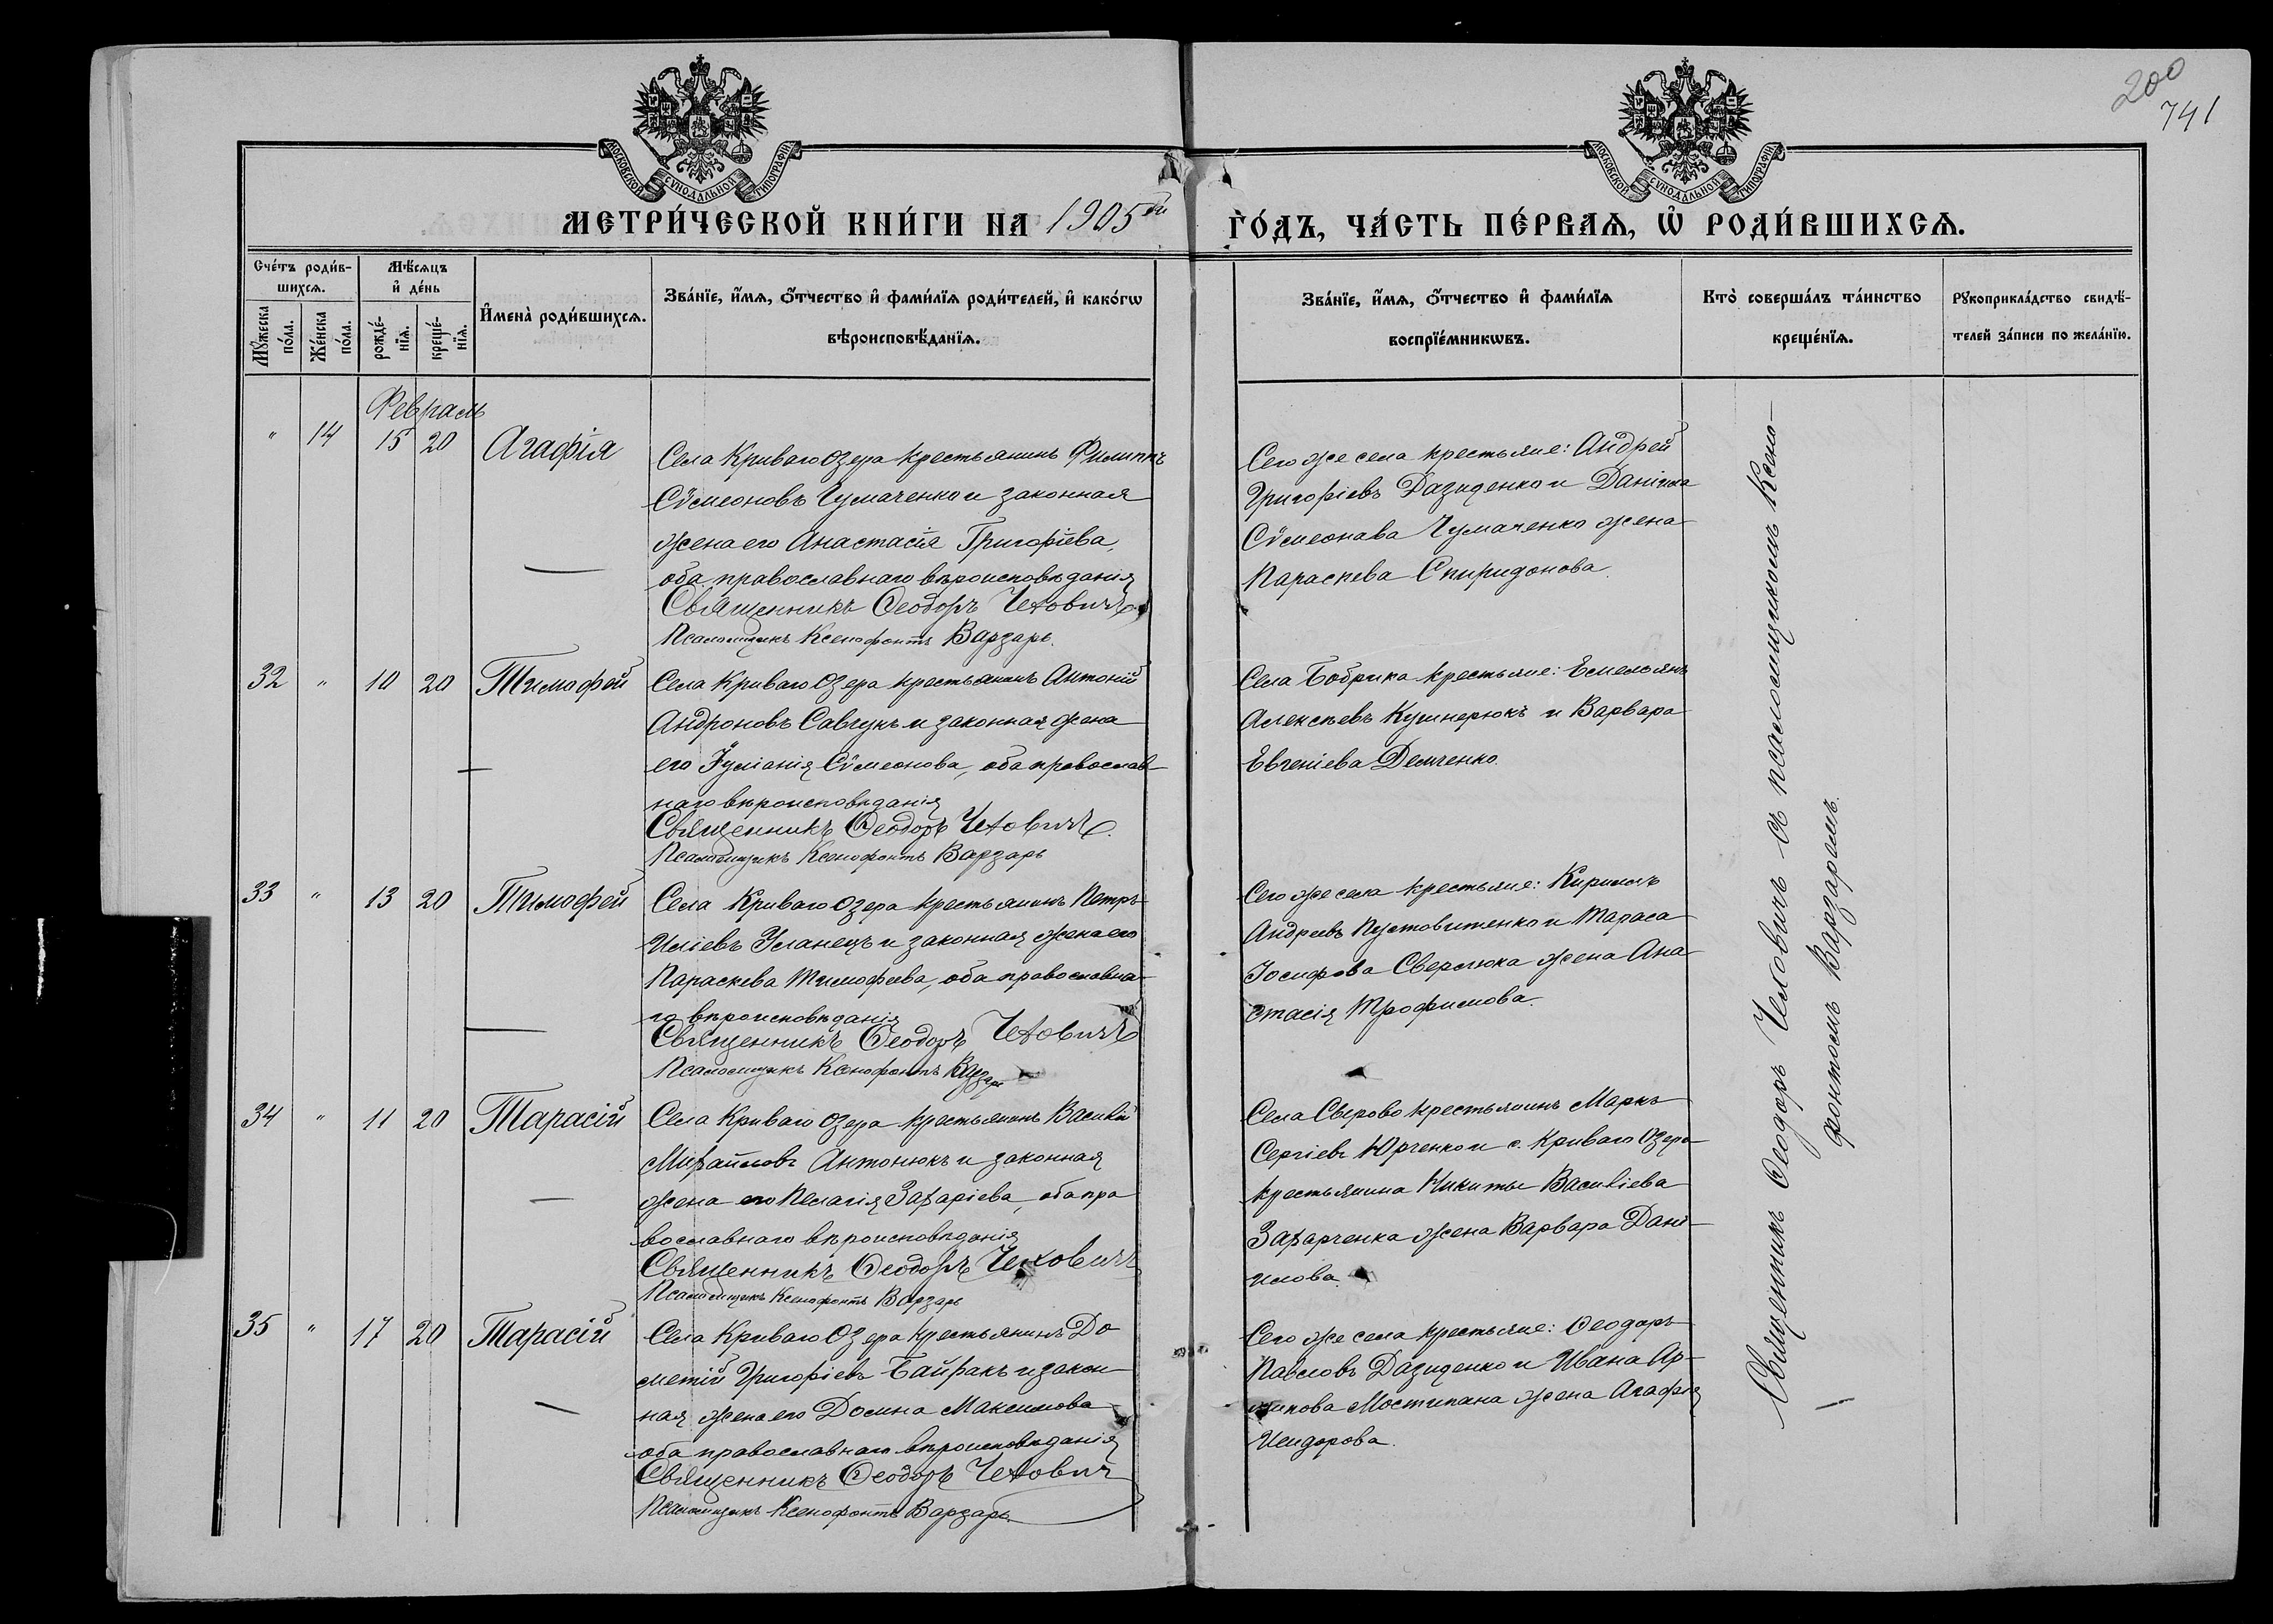 200
741
МОСКОВСКОЙ СѴНОДАЛЬНОЙ ТИПОГРАФІИ
МОСКОВСКОЙ СѴНОДАЛЬНОЙ ТИПОГРАФІИ
МЕТРИ́ЧЕСКОЙ КНИ́ГИ НА 1905й ГО́ДЪ, ЧА́СТЬ ПЕ́РВАѦ, Ѡ҆ РОДИ́ВШИХСѦ.
Сче́тъ роди́в-
шихсѧ.
Мꙋ́жеска по́ла.
Же́нска по́ла.
Мѣ́сѧцъ
и҆ де́нь
рожде́-
нїѧ.
креще́-
нїѧ.
И҆мена̀ роди́вшихсѧ.
Зва́нїе, и҆́мѧ, ѻ҆́тчество и҆ фами́лїѧ роди́телей, и҆ како́гѡ
вѣроисповѣ́данїѧ.
Зва́нїе, и҆́мѧ, ѻ҆́тчество и҆ фами́лїѧ
воспрїе́мникѡвъ.
Кто̀ соверша́лъ та́инство
креще́нїѧ.
Рꙋкоприкла́дство свидѣ́-
телей за́писи по жела́нїю.
Февраль
" 14 15 20 Агафія
Села Криваго Озера крестьянинъ Филиппъ
Сѵмеоновъ Чумаченко и законная
жена его Анастасія Григоріева,
оба православнаго вѣроисповѣданія
Священникъ Ѳеодоръ Чеховичъ
Псаломщикъ Ксенофонтъ Варзарь.
Сего же села крестьяне: Андрей
Григоріевъ Дазиденко и Даніила
Сѵмеонава Чумаченко жена
Параскева Спиридонова.
32 " 10 20 Тимофей
Села Криваго Озера крестьянинъ Антоній
Андроновъ Савчукъ и законная жена
его Іуліанія Сѵмеонова, оба православ-
наго вѣроисповѣданія
Священникъ Ѳеодоръ Чеховичъ.
Псаломщикъ Ксенофонтъ Варзарь
Села Бобрика крестьяне: Емельянъ
Алексѣевъ Кушнерюкъ и Варвара
Евгеніева Демченко.
33 " 13 20 Тимофей
Села Криваго Озера крестьянинъ Петръ
Иліевъ Уланецъ и законная жена его
Параскева Тимофеева, оба православна-
го вѣроисповѣданія
Священникъ Ѳеодоръ Чеховичъ
Псаломщикъ Ксенофонтъ Варзарь
Сего же села крестьяне: Кириллъ
Андреевъ Пустовитенко и Тараса
Іосифова Сверлюка жена Ана-
стасія Трофимова.
34 " 11 20 Тарасій
Села Криваго Озера крестьянинъ Василій
Михайловъ Антонюкъ и законная
жена его Пелагія Захаріева, оба пра
вославнаго вѣроисповѣданія
Священникъ Ѳеодоръ Чеховичъ
Псаломщикъ Ксенофонтъ Варзарь
Села Сырово крестьянинъ Маркъ
Сергіевъ Юрченко и с. Криваго Озера
крестьянина Никиты Василіева
Захарченка жена Варвара Дані-
илова.
35 " 17 20 Тарасій
Села Криваго Озера крестьянинъ До
метій Григоріевъ Байракъ и закон-
ная жена его Домна Максимова
оба православнаго вѣроисповѣданія
Священникъ Ѳеодоръ Чеховичъ
Псаломщикъ Ксенофонтъ Варзарь
Сего же села крестьяне: Ѳеодоръ
Павловъ Дазиденко и Ивана Ар-
хипова Мостипана жена Агафія
Исидорова.
Священникъ Ѳеодоръ Чеховичъ съ псаломщикомъ Ксено-
фонтомъ Варзаремъ.